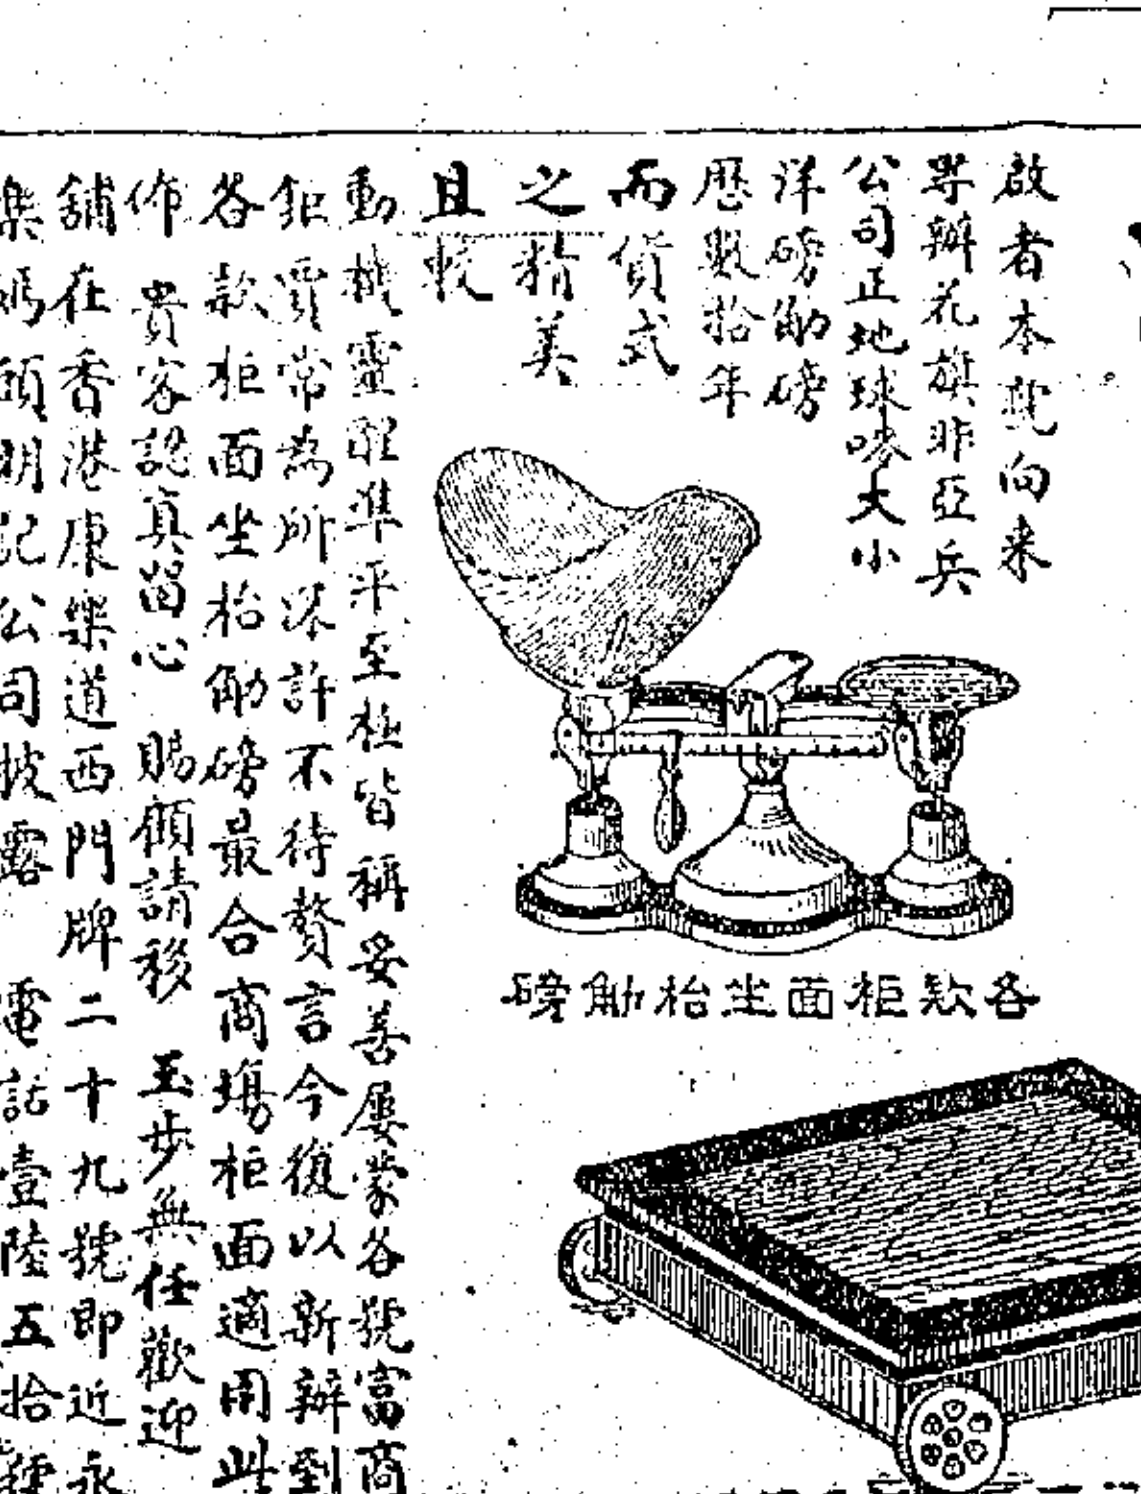 啟者本號向来
專辦花旗非亞兵
公司正地球嘜大小
洋磅勈磅
歷數拾年
而貨式
之精美
且較
動機靈醒準平至極皆稱妥善屢蒙各號富商
鉅賈常為所深許不待贅言今復以新辦到
各款柜面坐枱勈磅最合商塲柜面適用此
佈 貴客認真留心 賜顧請移 玉步無任歡迎
舖在香港康樂道西門牌二十九號即近永
樂碼頭明記公司披露 電話壹陸五拾
各款柜面坐枱勈磅